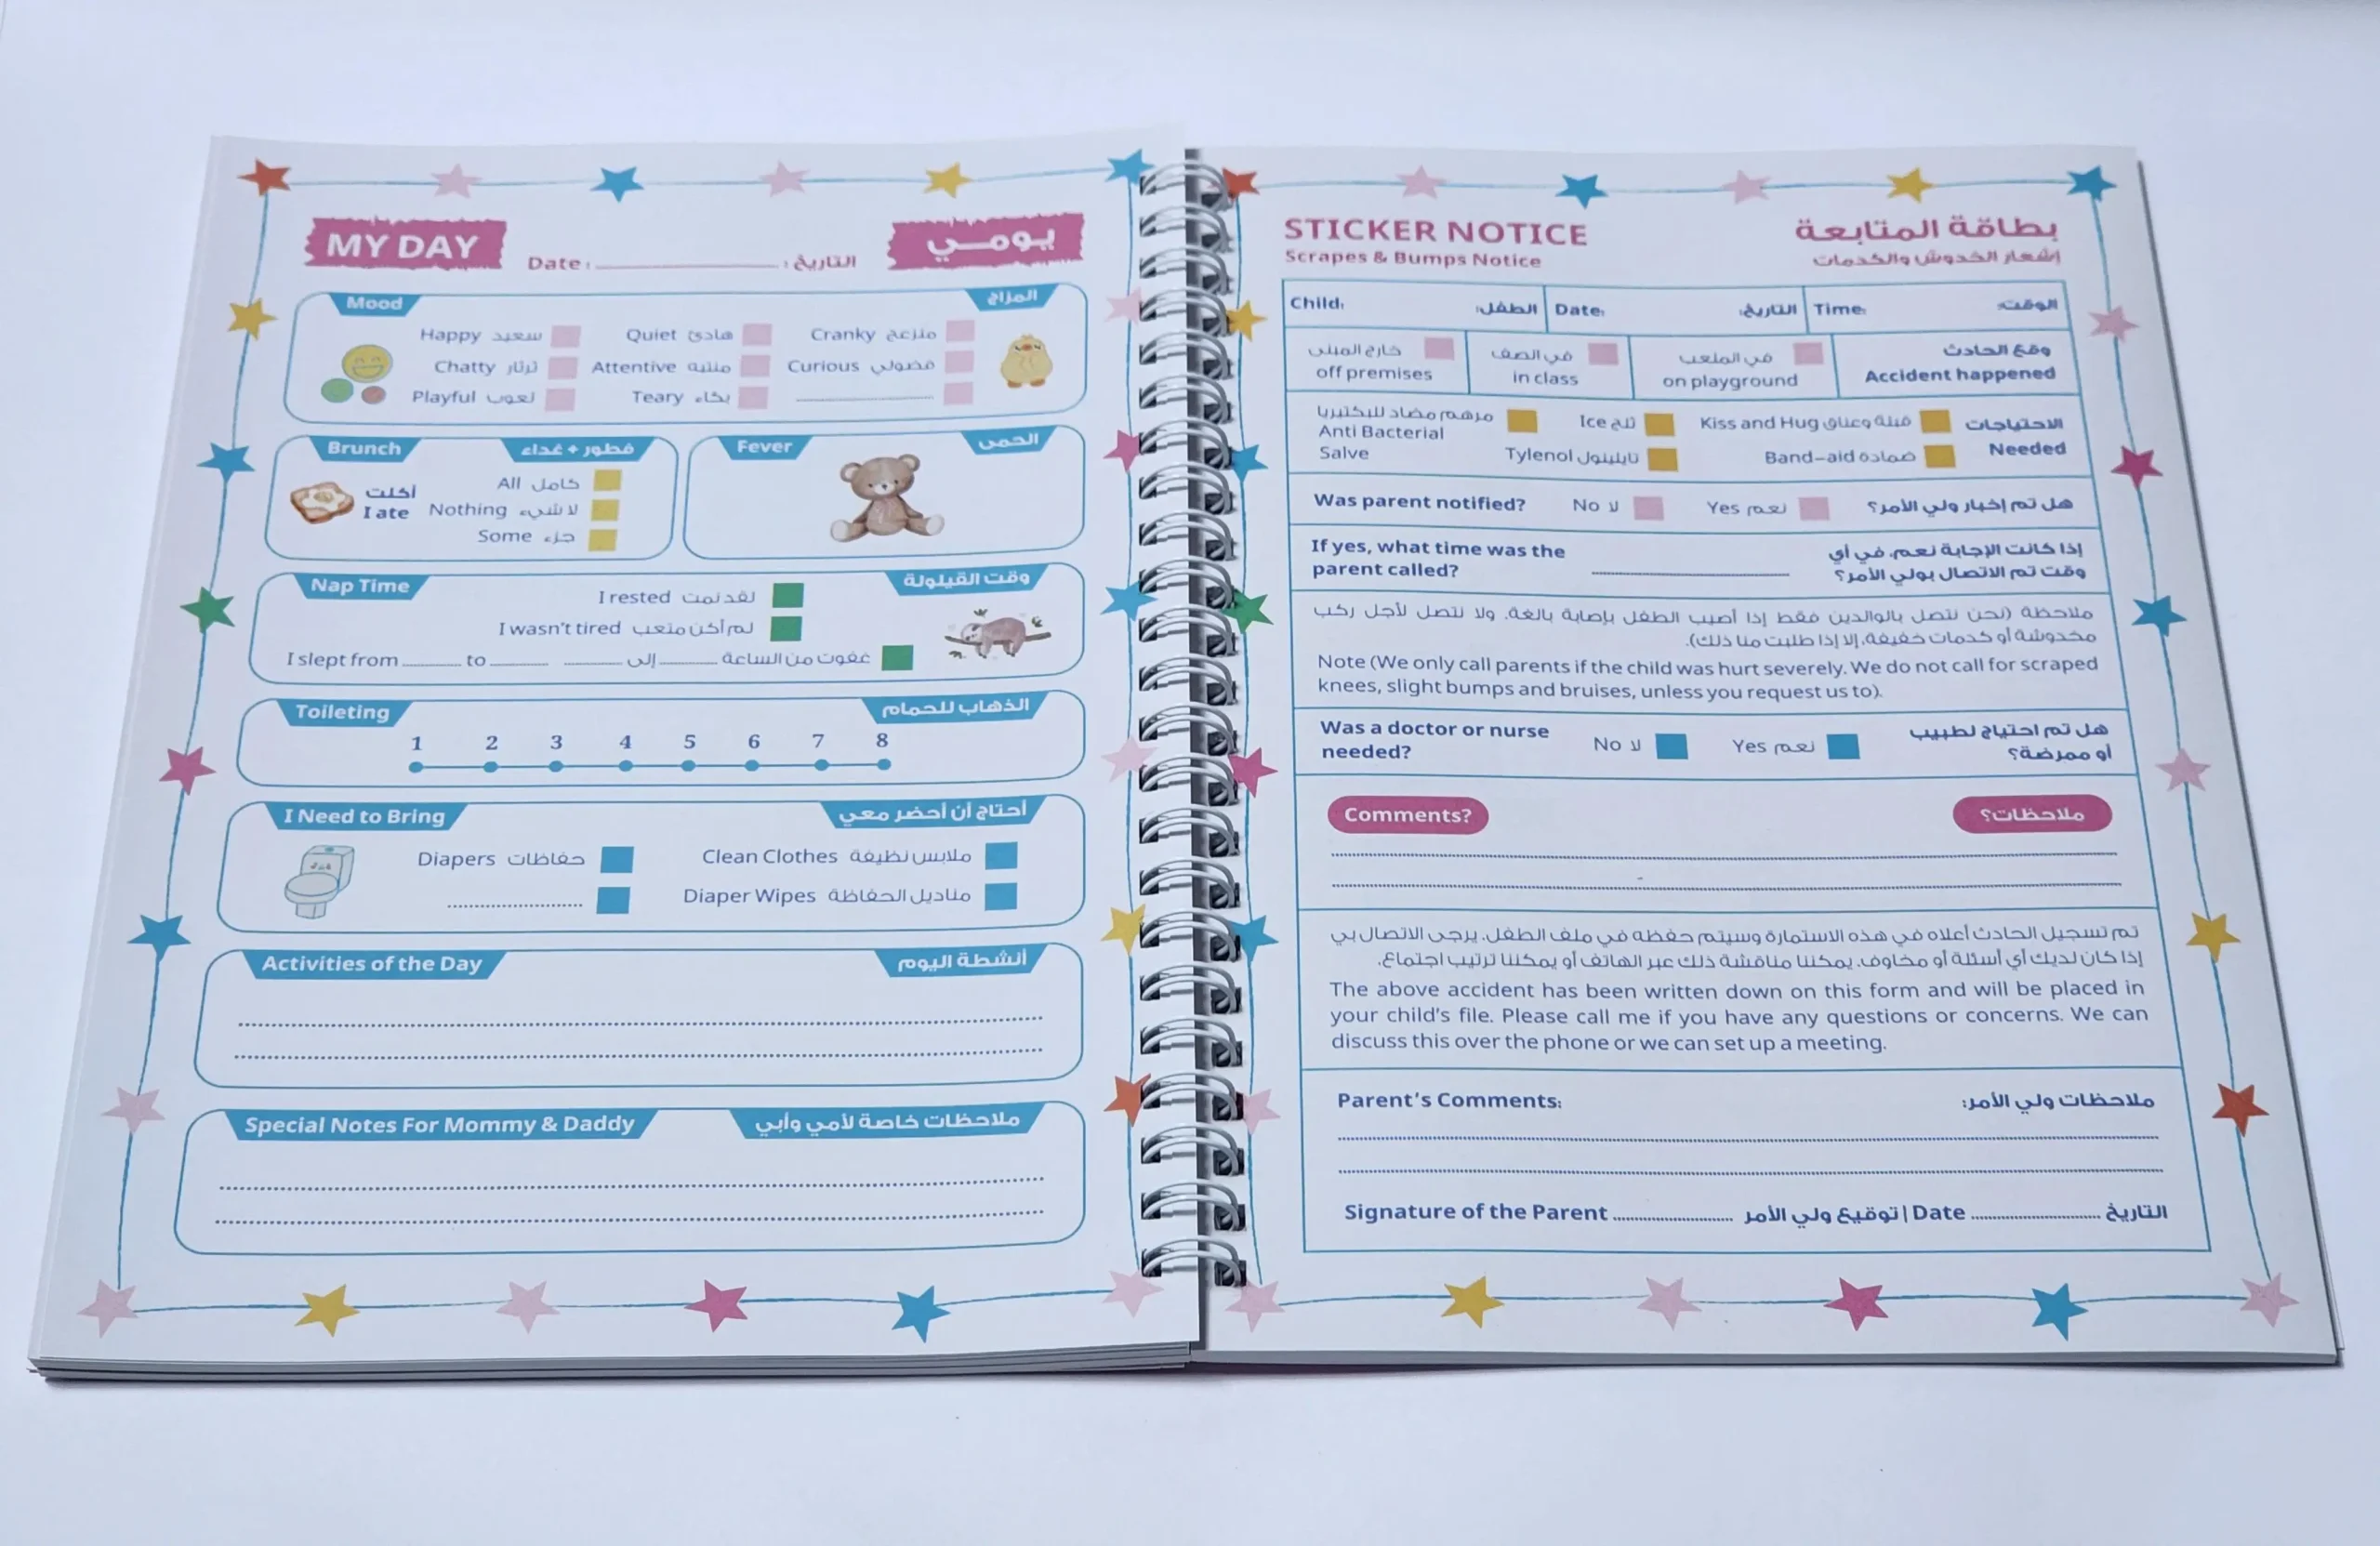 MY DAY
Date: التاريخ:
يومي
Mood
المزاج
Happy سعيد
Quiet هادئ
Cranky منزعج
Chatty ثرثار
Attentive منتبه
Curious فضولي
Playful لعوب
Teary بكاء
Brunch
فطور + غداء
أكلت
I ate
All كامل
Nothing لا شيء
Some جزء
Fever
الحمى
Nap Time
وقت القيلولة
I rested لقد نمت
I wasn't tired لم أكن متعب
I slept from to إلى غفوت من الساعة
Toileting
الذهاب للحمام
1 2 3 4 5 6 7 8
I Need to Bring
أحتاج أن أحضر معي
Diapers حفاظات
Clean Clothes ملابس نظيفة
Diaper Wipes مناديل الحفاظة
Activities of the Day
أنشطة اليوم
Special Notes For Mommy & Daddy
ملاحظات خاصة لأمي وأبي
STICKER NOTICE
Scrapes & Bumps Notice
بطاقة المتابعة
إشعار الخدوش والكدمات
Child: الطفل:
Date: التاريخ:
Time: الوقت:
خارج المبنى
off premises
في الصف
in class
في الملعب
on playground
وقع الحادث
Accident happened
مرهم مضاد للبكتيريا
Anti Bacterial
Salve
Ice ثلج
Kiss and Hug قبلة وعناق
Tylenol تايلينول
Band-aid ضمادة
الاحتياجات
Needed
Was parent notified? No لا Yes نعم هل تم إخبار ولي الأمر؟
If yes, what time was the
parent called?
إذا كانت الإجابة نعم، في أي
وقت تم الاتصال بولي الأمر؟
ملاحظة (نحن نتصل بالوالدين فقط إذا أصيب الطفل بإصابة بالغة، ولا نتصل لأجل ركب
مخدوشة أو كدمات خفيفة، إلا إذا طلبت منا ذلك).
Note (We only call parents if the child was hurt severely. We do not call for scraped
knees, slight bumps and bruises, unless you request us to).
Was a doctor or nurse
needed?
No لا Yes نعم
هل تم احتياج لطبيب
أو ممرضة؟
Comments?
ملاحظات؟
تم تسجيل الحادث أعلاه في هذه الاستمارة وسيتم حفظه في ملف الطفل. يرجى الاتصال بي
إذا كان لديك أي أسئلة أو مخاوف. يمكننا مناقشة ذلك عبر الهاتف أو يمكننا ترتيب اجتماع.
The above accident has been written down on this form and will be placed in
your child's file. Please call me if you have any questions or concerns. We can
discuss this over the phone or we can set up a meeting.
Parent's Comments: ملاحظات ولي الأمر:
Signature of the Parent توقيع ولي الأمر | Date التاريخ